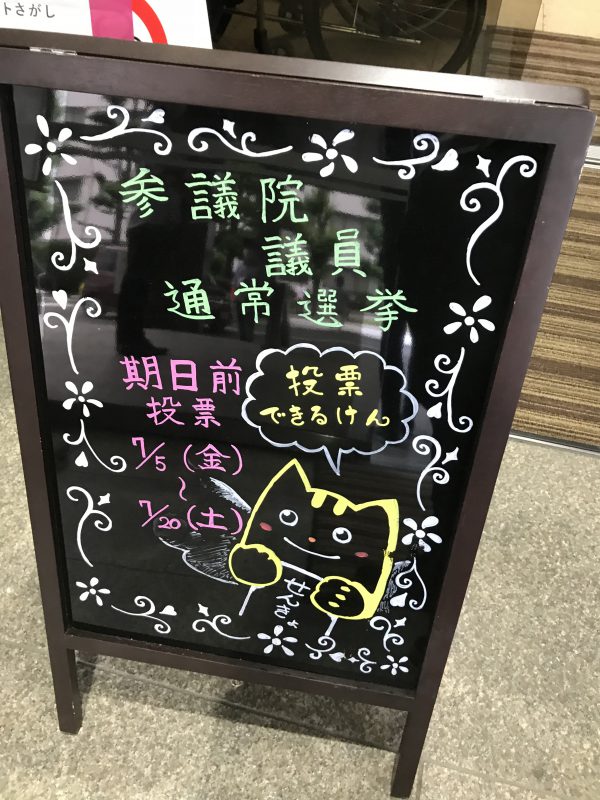 トさがし
参議院
議員
通常選挙
期日前
投票
7/5(金)
~
7/20(土)
投票
できるけん
せんきょ